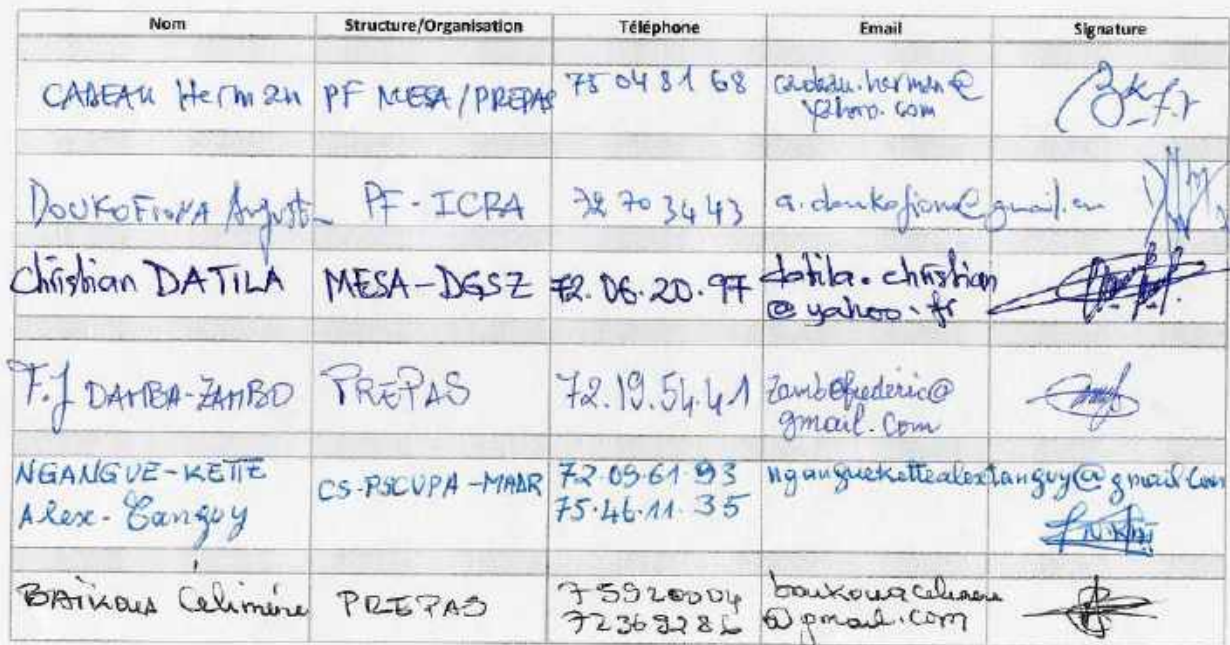 Nom Structure/Organisation Téléphone Email Signature
CADEAU Herman PF MESA/PREPAS 75 04 81 68 cadeau.herman@
yahoo.com
DOUKOFIONA PF-ICRA 72 70 34 43 a.doukofiona@gmail.com
Christian DATILA MESA-DGSZ 72.06.20.97 datila.christian
@yahoo.fr
F.J DAMBA-ZAMBO PREPAS 72.19.54.41 zambofrederic@
gmail.com
NGANGUE-KETTE CS-PSCUPA-MADR 72.09.61.93 nganguekettealextanguy@gmail.com
Alex-Tanguy 75.46.11.35
Celimène PREPAS 75920004
@gmail.com